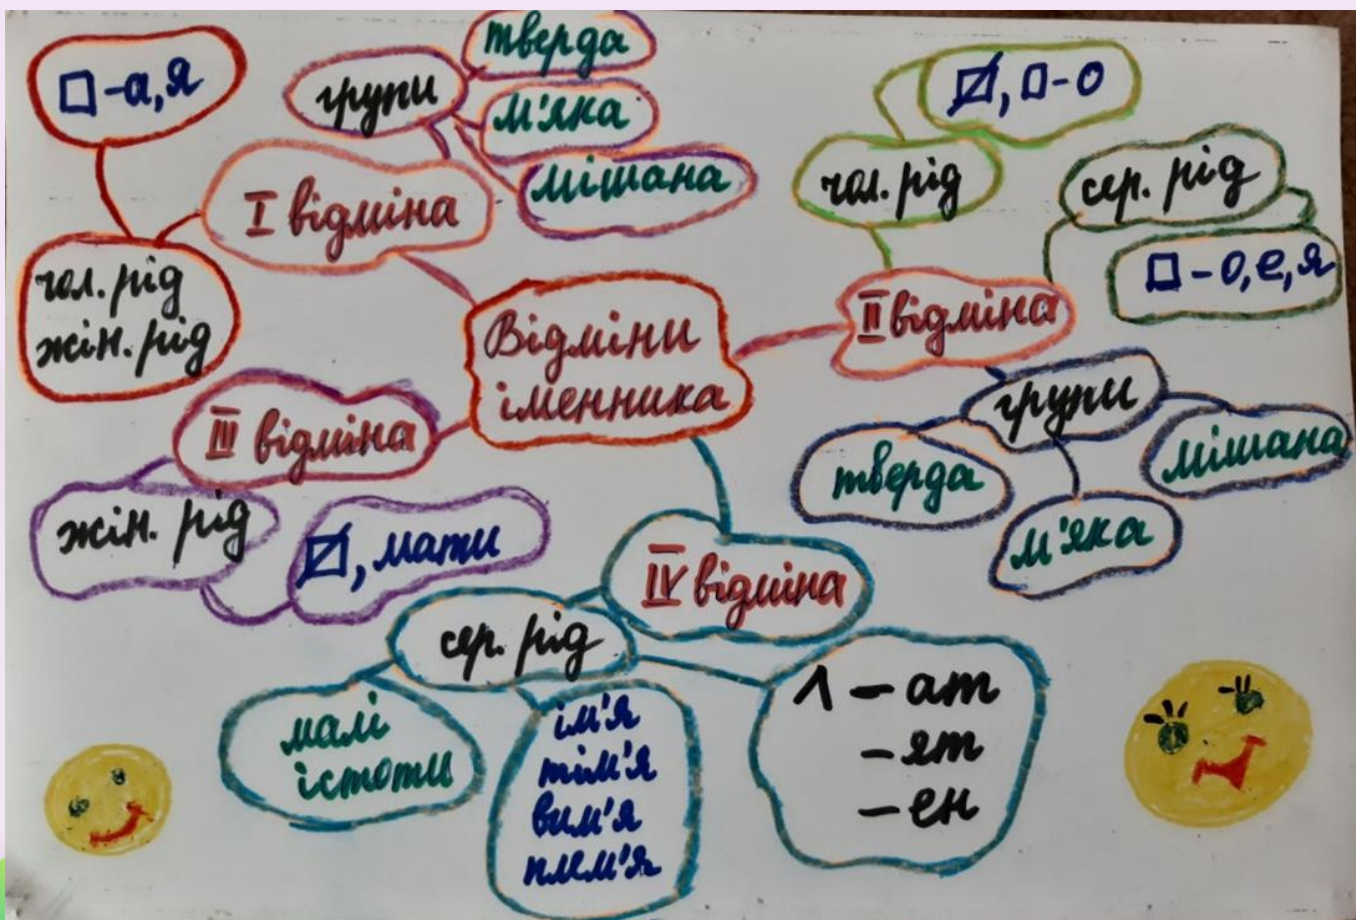 Відміни
іменника
І відміна
чол. рід
жін. рід
□-а, я
групи
тверда
м'яка
мішана
ІІ відміна
чол. рід
∅, □-о
сер. рід
□-о, е, я
групи
тверда
м'яка
мішана
ІІІ відміна
жін. рід
∅, мати
IV відміна
сер. рід
малі
істоти
ім'я
тім'я
вим'я
плем'я
Λ - ат
- ят
- ен